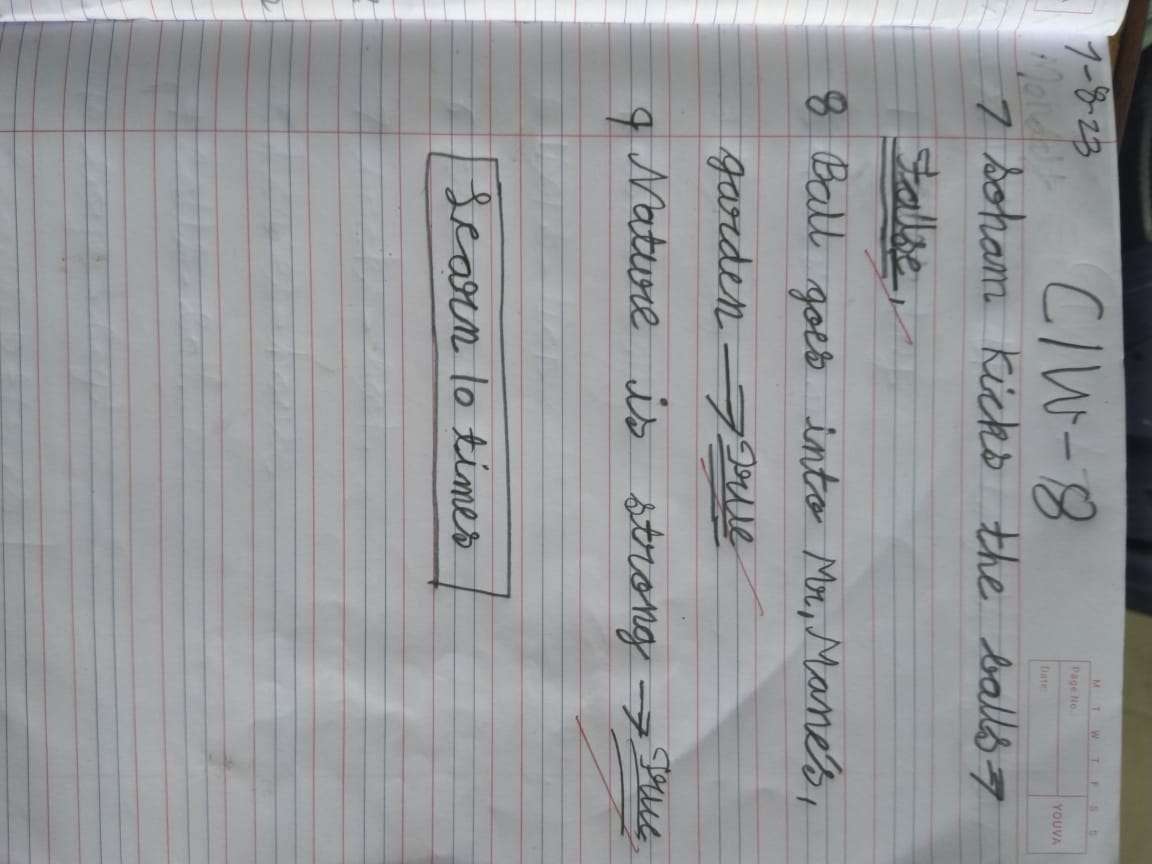 M T W T F S S
Page No.:
Date:
YOUVA
7-8-23
C/W-8
7 Soham kicks the balls →
Fallse,
8 Ball goes into Mr, Mane's,
garden → True
9 Nature is strong → True
Learn 10 times